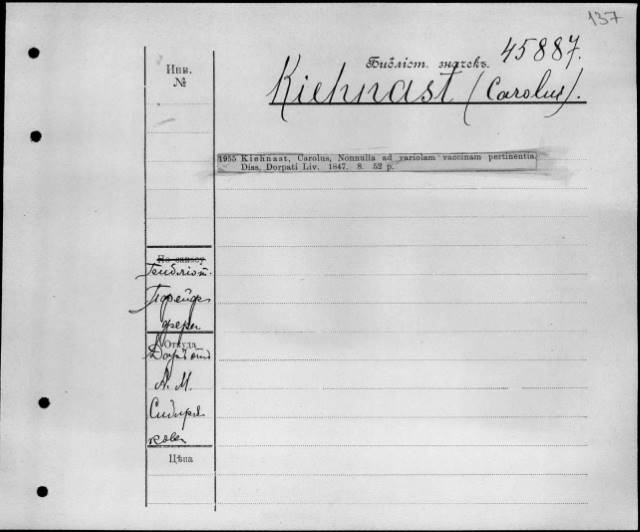 137
45887.
Библіот. значекъ
Инв.
№
Kiehnast (Carolus).
1955 Kiehnast, Carolus, Nonnulla ad variolam vaccinam pertinentia.
Diss. Dorpati Liv. 1847. 8. 52 p.
По списку
Библіот.
Пфейф
фера
Откуда
Даръ отъ
А. М.
Сибиря
кова
Цѣна